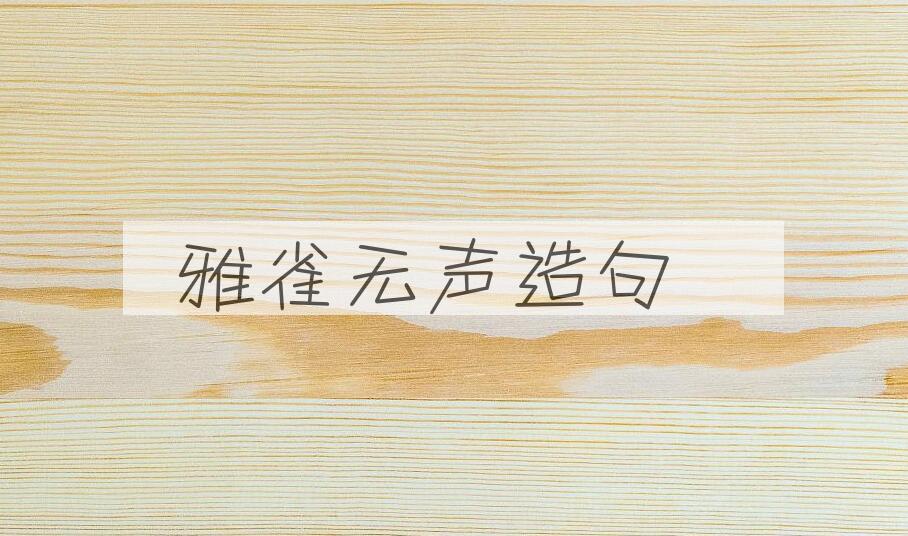 雅雀无声造句